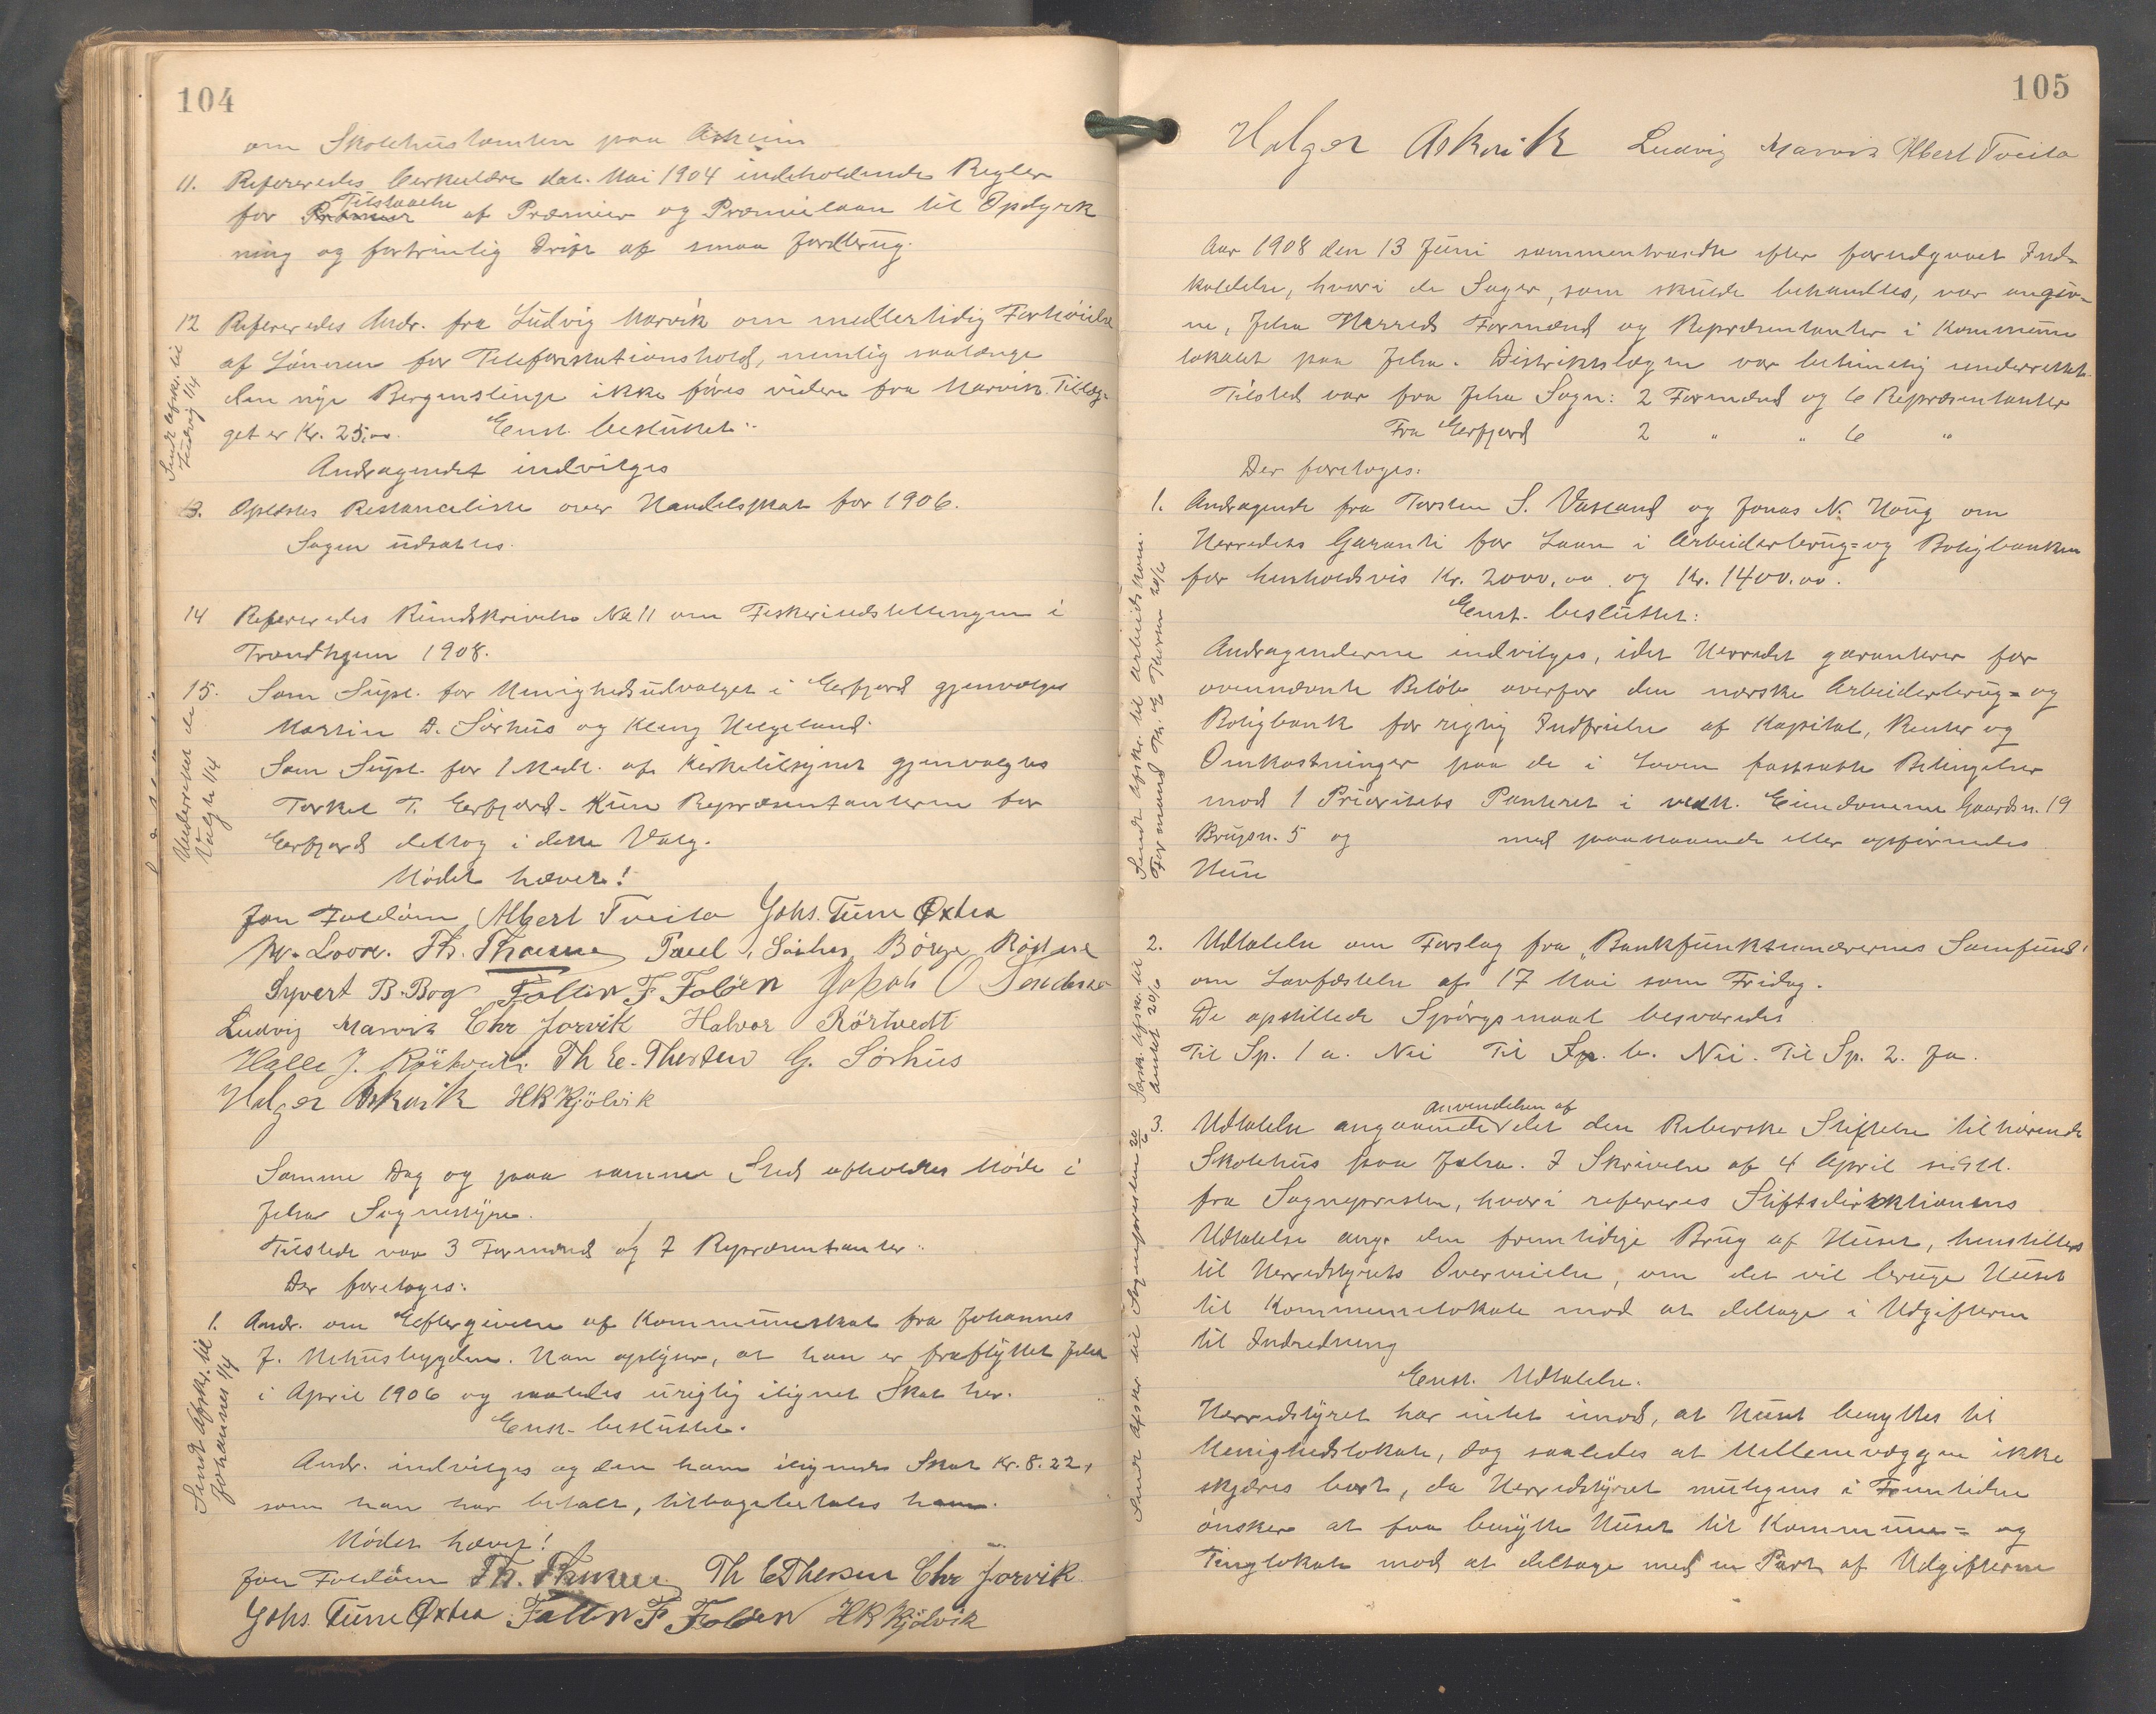 104
om Skolehustomten paa Askeim
11. Refereredes Cirkulære dat. Mai 1904 indeholdende Regler
for Tilstaaelse af Præmier og Præmielaan til Opdyrk
ning og fortrinlig Drift af smaa Jordbrug.
12 Refereredes Andr. fra Ludvig Marvik om midlertidig Forhöielse
af Lönnen for Telefonstationshold, nemlig saalænge
den nye Bergenslinje ikke föres videre fra Marvik. Tillæg-
get er Kr. 25,00. Enst. besluttet:
Andragendet indvilges
Sendt Afskr. til
Ludvig 1/4
13. Oplæstes Restanceliste over Handelsskat for 1906.
Sagen udsættes.
14 Refereredes Rundskrivelse No 11 om Fiskeriudstillingen i
Trondhjem 1908.
15. Som Supl. for Menighedsudvalget i Jerfjord gjenvalges
Martin A. Sörhus og Kleng Helgeland.
Som Supl. for 1 Medl. af Kirketilsynet gjenvalgtes
Torkel T. Eerfjord. Kun Repræsentanterne for
Eerfjord deltog i dette Valg.
Underrettet de
Valgte 1/4
Mödet hævet!
Jon Foldöen Albert Tveita Johs. Tune Öxtra
W. Loord. Th. Thorsen Paul Sörhus Börge Rögne
Syvert B. Bog Falten F. Foldöen Jakob O
Ludvig Marvik Chr Jorvik Halvor Rörtvedt
Halle J. Rörtvedt. Th E. Thorsen G. Sörhus
Holger Askvik HK Kjölvik
Samme Dag og paa samme Sted afholdtes Möde i
Jelsa Sognestyre.
Tilstede var 3 Formænd og 7 Repræsentanter.
Der foretoges:
1. Andr. om Eftergivelse af Kommuneskat fra Johannes
J. Nehusbygden. Han oplyser, at han er fraflyttet Jelsa
i April 1906 og saaledes urigtig ilignet Skat her.
Enst. besluttet.
Andr. indvilges og den ham ilignede Skat Kr. 8.22,
som han har betalt, tilbagebetales ham.
Sendt Afskr. til
Johannes 1/4
Mödet hævet!
Jon Foldöen Th. Thorsen Th E Thorsen Chr Jorvik
Johs. Tune Öxtra Falten F. Foldöen HK Kjölvik
105
Holger Askvik Ludvig Marvik Albert Tveita
Aar 1908 den 13 Juni sammentraadte efter forudgaaet Ind-
kaldelse, hvori de Sager, som skulde behandles, var angiv-
ne, Jelsa Herreds Formænd og Repræsentanter i Kommune
lokalet paa Jelsa. Distriktslægen var betimelig underrettet.
Tilsted var fra Jelsa Sogn: 2 Formænd og 6 Repræsentanter
Fra Eerfjord 2 " " 6 "
Der foretoges:
1. Andragende fra Torsten S. Vasland og Jonas N. Haug om
Herredets Garanti for Laan i Arbeiderbrug- og Boligbanken
for henholdsvis Kr. 2000,00 og Kr. 1400.00.
Enst. besluttet:
Andragenderne indvilges, idet Herredet garanterer for
ovennævnte Belöb overfor den norske Arbeiderbrug- og
Boligbank for rigtig Indfrielse af Kapital, Renter og
Omkostninger paa de i Loven fastsatte Betingelser
mod 1 Prioritets Panteret i vedk. Eiendomme Gaardsn. 19
Brugsn. 5 og med paastaaende eller opförendes
Huse
Sendt Afskr. til Arbeidskom.
Formand Th. E Thorsen 20/6
2. Udtalelse om Forslag fra "Bankfunktionærernes Samfund"
om Lovfæstelse af 17 Mai som Fridag.
De opstillede Spörgsmaal besvaredes
Til Sp. 1 a. Nei Til Sp. b. Nei. Til Sp. 2. Ja.
Særsk. Afskr. til
Amtet 20/6
3. Udtalelse angaaende anvendelsen af det den Reberske Stiftelse tilhörende
Skolehus paa Jelsa. I Skrivelse af 4 April sidstl.
fra Sognepresten, hvori refereres Stiftsdirektionens
Udtalelse ang. den fremtidige Brug af Huset, henstilles
til Herredstyrets Overveielse, om det vil bruge Huset
til Kommunelokale mod at deltage i Udgifterne
til Indredning
Enst. Udtalelse.
Herredstyret har intet imod, at Huset benyttes til
Menighedslokale, dog saaledes at Mellemvæggen ikke
skjæres bort, da Herredstyret muligens i Fremtiden
önsker at faa benytte Huset til Kommune- og
Tinglokale mod at deltage med en Part af Udgifterne
Sendt Afskr til Sognepresten 20/6